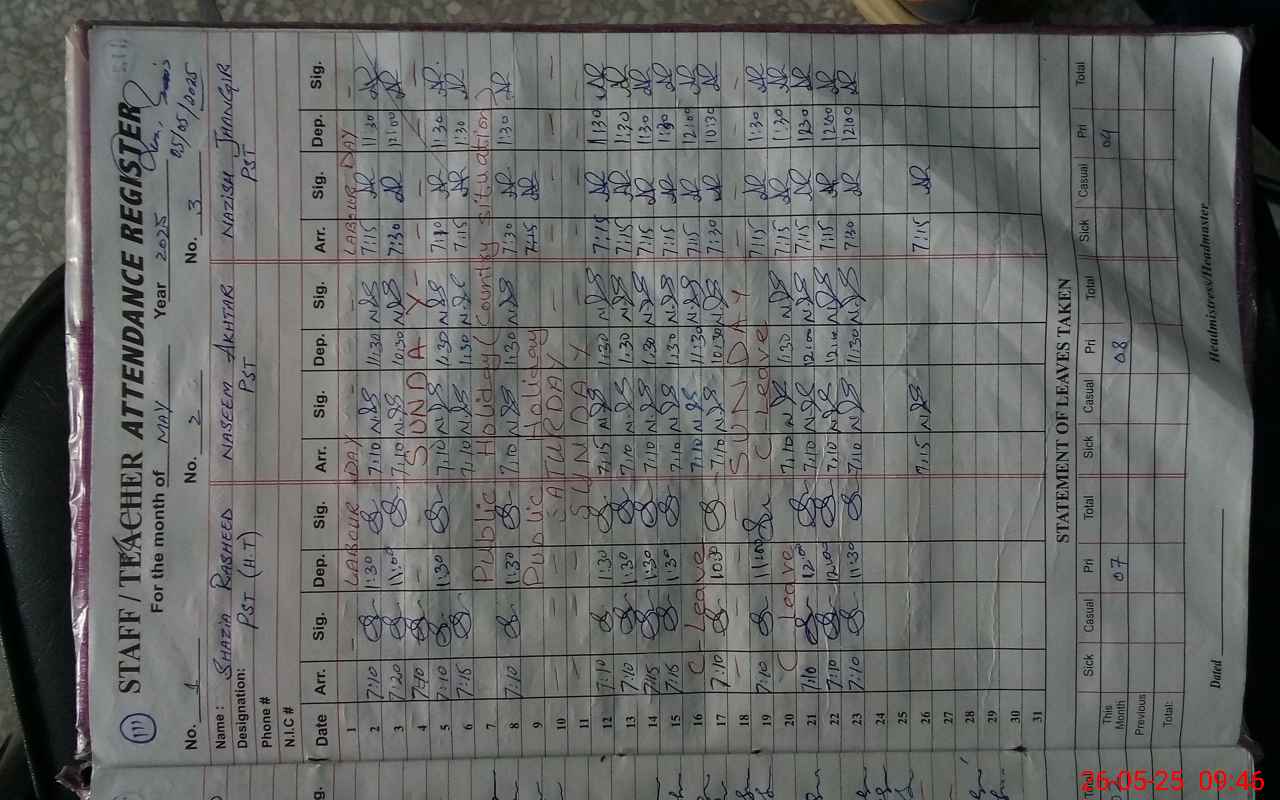 111
STAFF / TEACHER ATTENDANCE REGISTER
For the month of MAY Year 2025
05/05/2025
No. 1 No. 2 No. 3
Name : SHAZIA RASHEED NASEEM AKHTAR NAZISH JHANGIR
Designation: PST (H.T) PST PST
Phone #
N.I.C #
Date Arr. Sig. Dep. Sig. Arr. Sig. Dep. Sig. Arr. Sig. Dep. Sig.
1 LABOUR DAY LABOUR DAY
2 7:10 1:30 7:10 11:30 7:15 11:30
3 7:20 11:00 7:10 10:30 7:30 11:00
4 7:10 SUNDAY
5 7:10 1:30 7:10 1:30 7:10 1:30
6 7:15 7:10 1:30 7:15 1:30
7 Public Holiday (Country situation)
8 7:10 1:30 7:10 1:30 7:30 1:30
9 Public Holiday 7:15
10 SATURDAY
11 SUNDAY
12 7:10 1:30 7:15 1:30 7:15 1:30
13 7:10 1:30 7:10 1:30 7:15 1:30
14 7:15 1:30 7:10 1:30 7:15 1:30
15 7:15 1:30 7:10 1:30 7:15 1:30
16 C Leave 7:10 11:30 7:15 12:00
17 7:10 10:30 7:10 10:30 7:30 10:30
18 SUNDAY
19 7:10 11:00 C Leave 7:15 1:30
20 C Leave 7:10 1:30 7:15 1:30
21 7:10 12:00 7:10 12:00 7:15 12:30
22 7:10 12:00 7:10 12:00 7:15 12:00
23 7:10 11:30 7:10 11:30 7:30 12:00
24
25
26 7:15 7:15
27
28
29
30
31
STATEMENT OF LEAVES TAKEN
Sick Casual Pri Total Sick Casual Pri Total Sick Casual Pri Total
This Month 07 08 04
Previous
Total:
Dated Headmistress/Headmaster
Sig.
Total
26-05-25 09:46